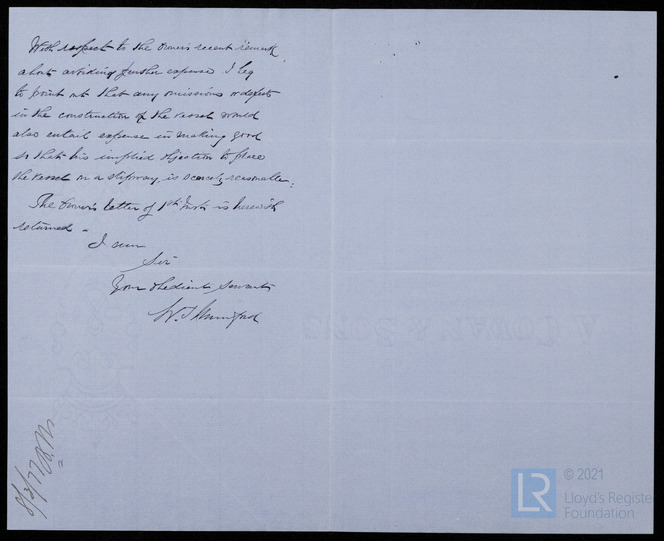 With respect to the Owner's recent remark
about avoiding further expense I beg
to point out that any omissions or defects
in the construction of the vessel would
also entail expense in making good
so that his implied objection to place
the vessel on a slipway, is scarcely reasonable.
The Owner's letter of 1st Inst. is herewith
returned -
I am
Sir
Your obedient Servant
W. T. Mumford
© 2021
LR
Lloyd's Register
Foundation